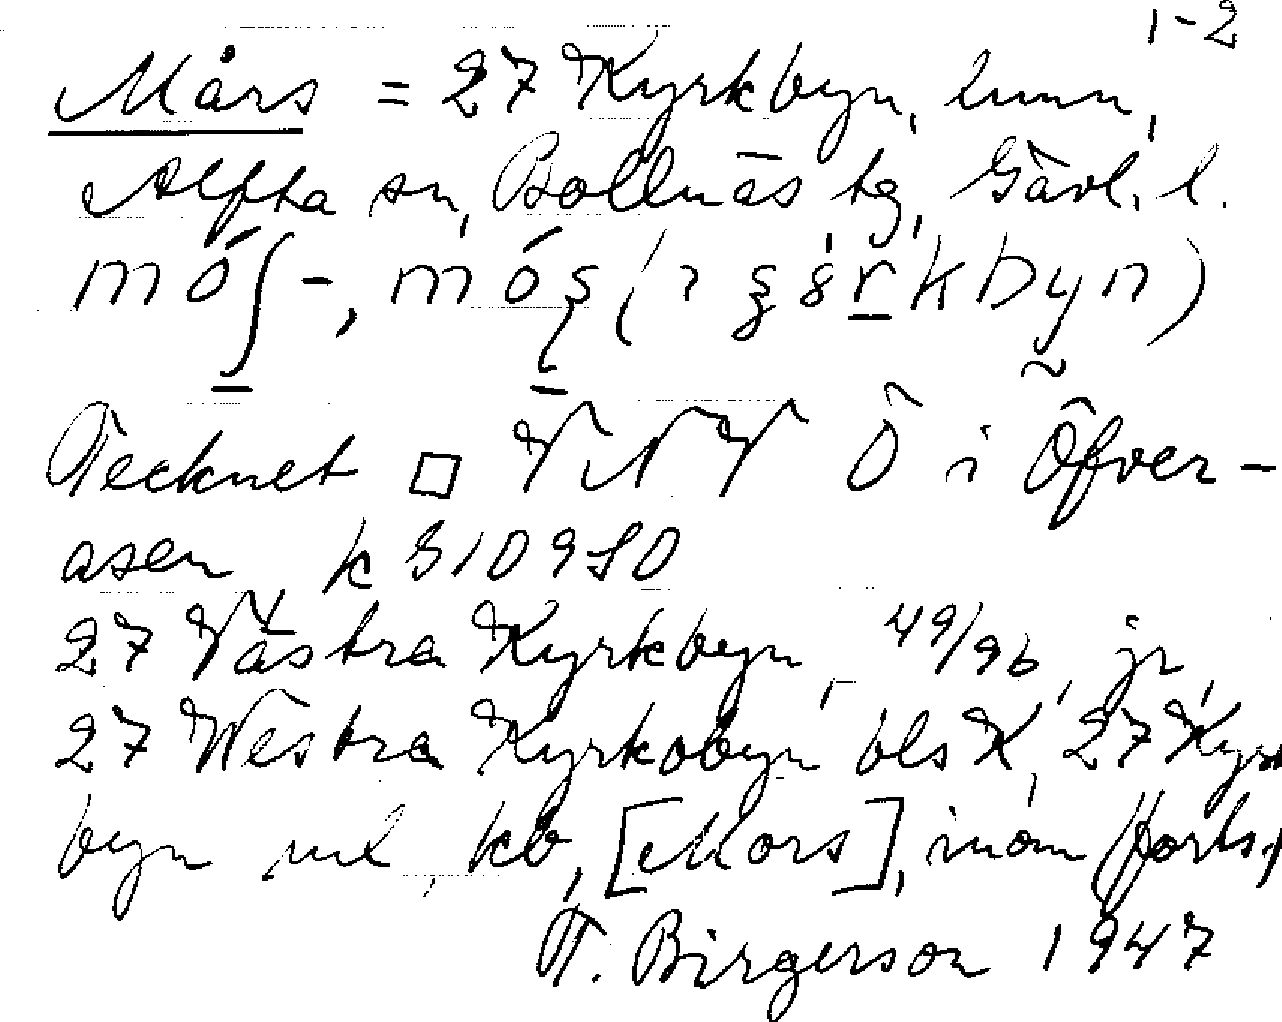 1-2
Mårs = 27 Kyrkbyn, hmn,
Alfta sn, Bollnäs tg, Gävl. l.
Tecknet □ VNV Ö i Öfver-
asen k 310950
27 Västra Kyrkbyn 49/96, jr,
27 Westra Kyrkobyn bls K, 27 Kyrk
byn ml, kb, [Mors], inom (forts.)
T. Birgerson 1947